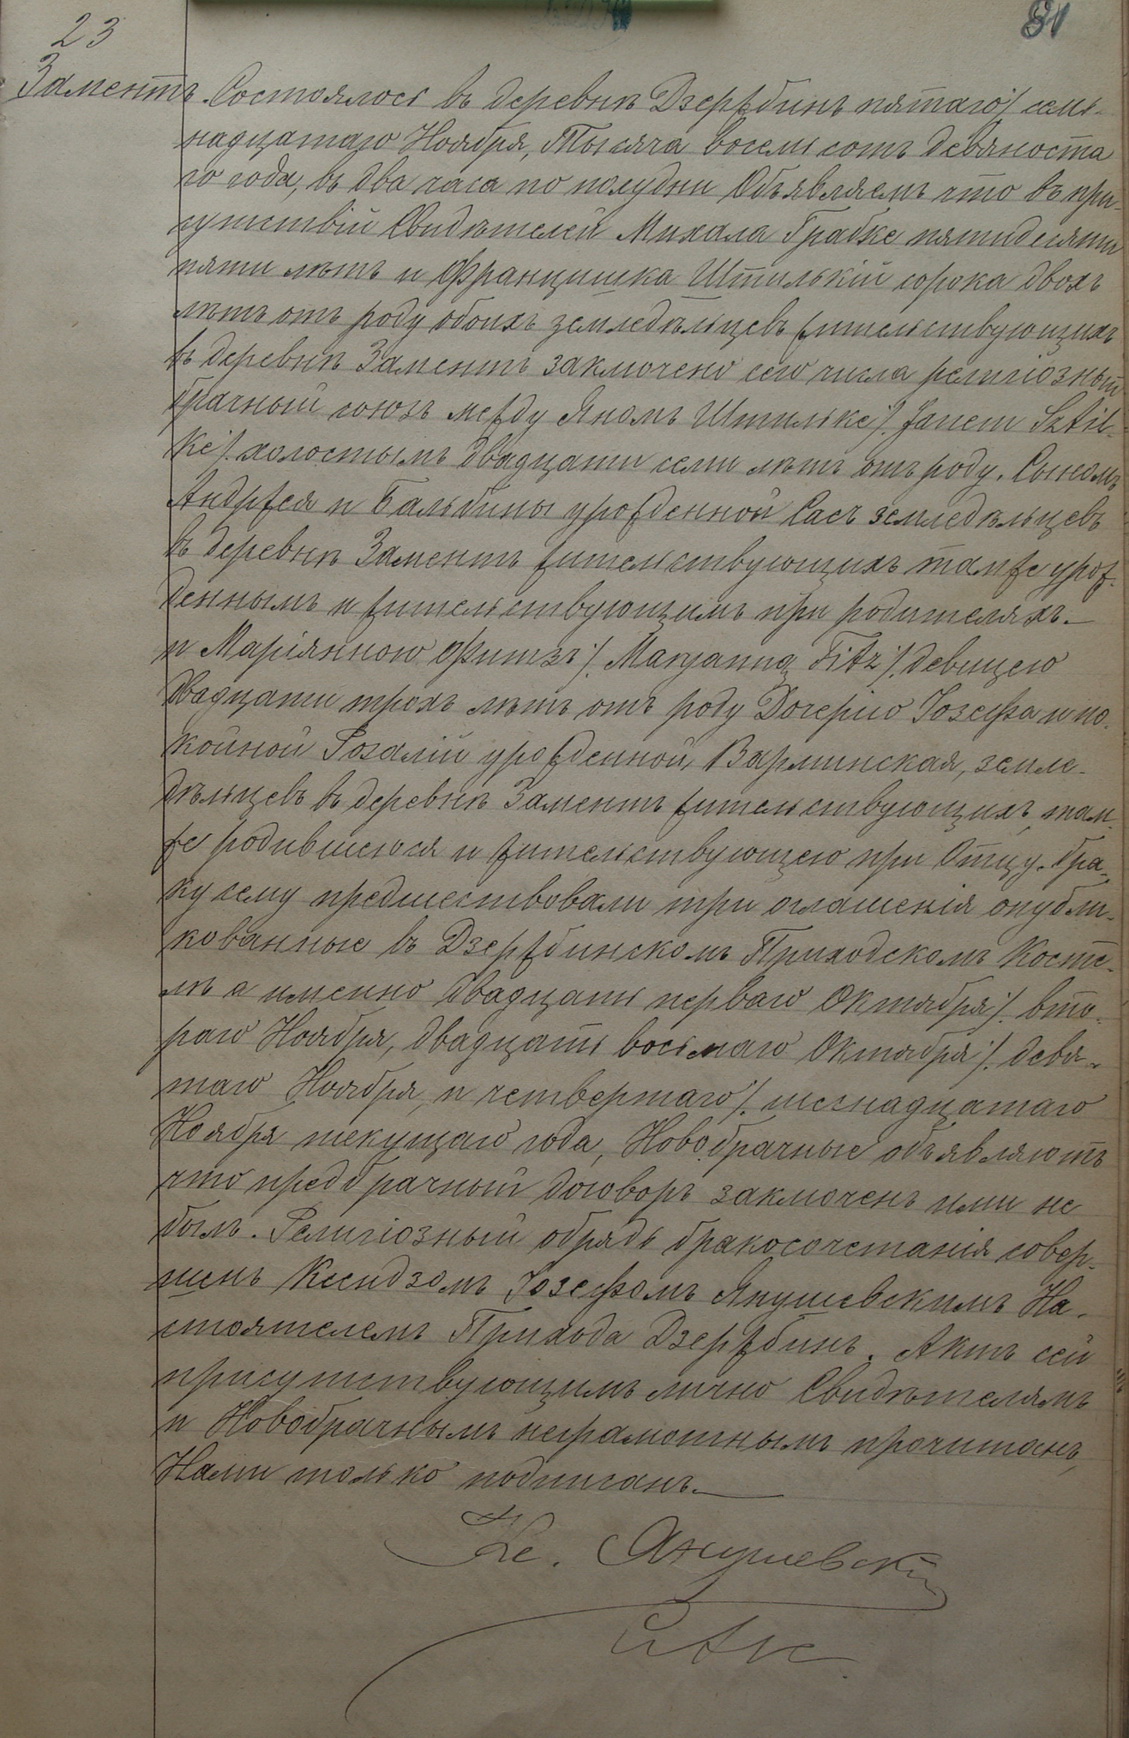 81
23
Заментъ. Состоялось въ деревнѣ Дзержбинъ пятаго /. семь-
надцатаго Ноября, Тысяча восемь сотъ девяноста
го года, въ два часа по полудни Объявляемъ что въ при-
сутствій Свидѣтелей Михала Грабке пятидесяти
пяти лѣтъ и Францишка Штилькій сорока двохъ
лѣтъ отъ роду обоихъ земледѣльцевъ жительствующихъ
въ деревнѣ Заментъ заключено сего числа религіозный
брачный союзъ между Яномъ Штильке /. Janem Sztil-
ke /. холостымъ двадцати семи лѣтъ отъ роду. Сыномъ
Андржея и Бальбины урожденной Сасъ земледѣльцевъ
въ деревнѣ Заментъ жительствующихъ тамже урож-
деннымъ и жительствующимъ при родителяхъ.—
и Маріянною Фитзъ /. Maryanną Fitz /. девицею
двадцати трохъ лѣтъ отъ роду Дочерію Іозефа и по-
койной Розалій урожденной Варминская, земле-
дѣльцевъ въ деревнѣ Заментъ жительствующихъ, там-
же родившеюся и жительствующею при Отцу. Бра-
ку сему предшествовали три оглашенія опубли-
кованные въ Дзержбинскомъ Приходскомъ Косте-
лѣ а именно двадцать перваго Октября /. вто-
раго Ноября, двадцать восьмаго Октября /. девя-
таго Ноября, и четвертаго /. шеснадцатаго
Ноября текущаго года, Новобрачные объявляютъ
что предбрачный договоръ заключенъ ими не
былъ. Религіозный обрядъ бракосочетанія совер-
шенъ Ксендзомъ Іозефомъ Янушевскимъ На-
стоятелемъ Прихода Дзержбинъ. Актъ сей
присутствующимъ лично Свидѣтелямъ
и Новобрачнымъ неграмотнымъ прочитанъ,
Нами только подписанъ.—
Кс. Янушевскій